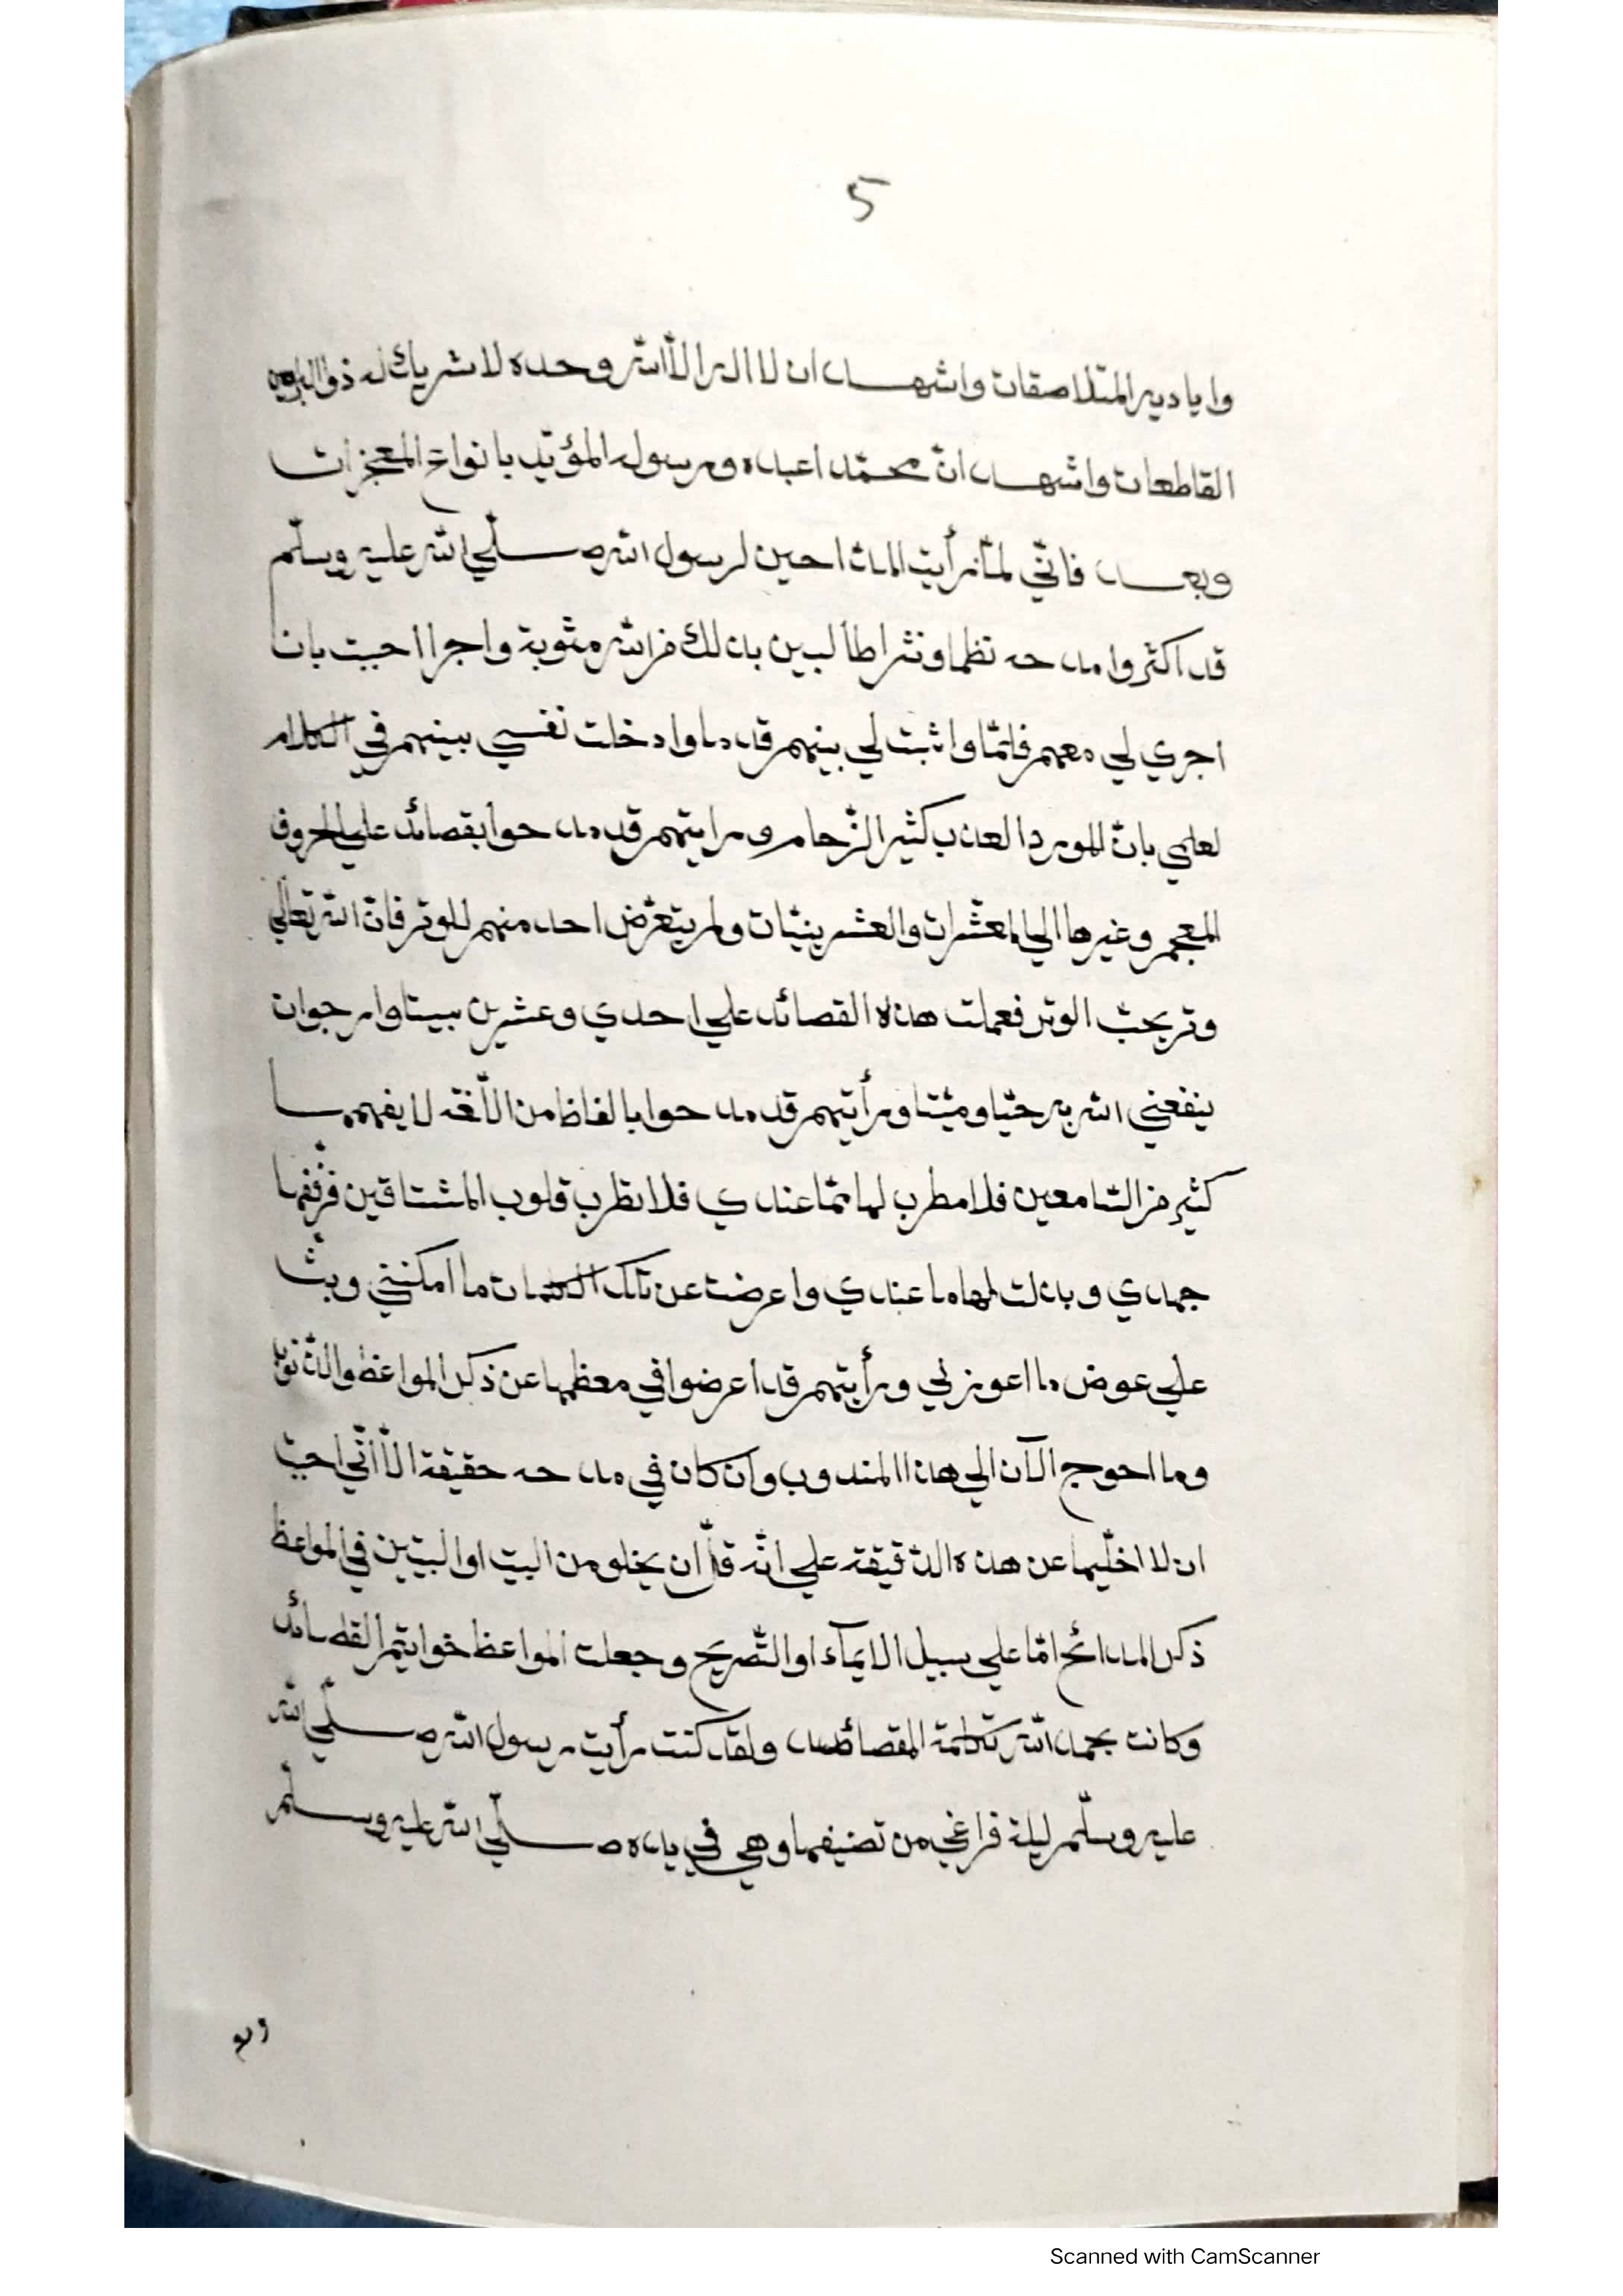 5
واياديه المتلاصقات واشهد ان لا اله الّا الله وحده لا شريك له ذو البراهين
القاطعات واشهد انّ محمّدا عبده ورسوله المؤيّد بانواع المعجزات
وبعد فانّي لمّا رأيت المدّاحين لرسول الله صلّي الله عليه وسلّم
قد اكثروا مدحه نظما ونثرا طالبين بذلك من الله مثوبة واجرا احببت بان
اجري لي معهم قلما واثبت لي بينهم قدما وادخلت نفسي بينهم في الكلام
لعلمي بانّ المورد العذب كثير الزّحام ورايتهم قد مدحوا بقصائد علي الحروف
المعجم وغيرها الي المعشّرات والعشرينيّات ولم يتعرّض احد منهم للوتر فانّ الله تعالي
وتر يحبّ الوتر فعملت هذه القصائد علي احدي وعشرين بيتا وارجوان
ينفعني الله به حيّا وميّتا ورأيتهم قد مدحوا بالفاظ من الّلغة لا يفهمها
كثير من السّامعين فلا مطرب لها ممّا عندي فلا تطرب قلوب المشتاقين فزففها
جهدي وبذلت لها ما عندي واعرضت عن تلك الكلمات ما امكنني وبثّ
علي عوض ما اعوزني ورأيتهم قد اعرضوا في معظمها عن ذكر المواعظ والذّنوب
وما احوج الآن الي هذا المندوب وان كان في مدحه حقيقة الّا انّي احبّ
ان لا اخلّيها عن هذه الدّقيقة علي انّه قلّ ان يخلو من البيت او البيتين في المواعظ
ذكر المدائح امّا علي سبيل الايمآء او التّصريح وجعلت المواعظ خواتيم القصائد
وكانت بحمد الله تكلمة المقصائد ولقد كنت رأيت رسول الله صلّي الله
عليه وسلّم ليلة فراغي من تصنيفها وهي في يده صلّي الله عليه وسلّم